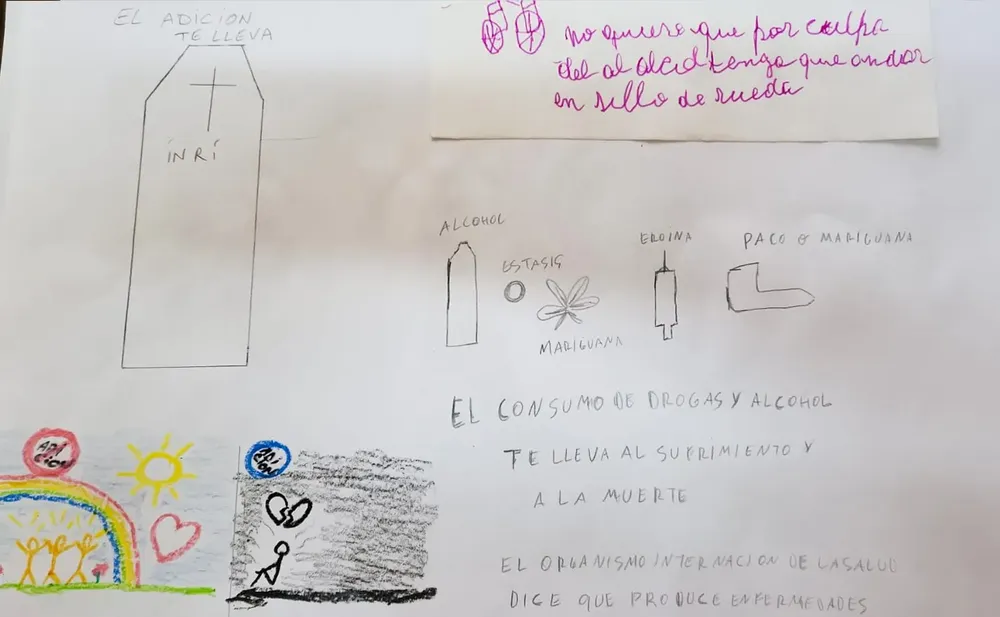 EL ADICION
TE LLEVA
INRI
no quiero que por culpa
del al alcol tenga que andar
en sillo de rueda
ALCOHOL
ESTASIS
MARIGUANA
EROINA
PACO O MARIGUANA
EL CONSUMO DE DROGAS Y ALCOHOL
TE LLEVA AL SUFRIMIENTO Y
A LA MUERTE
EL ORGANISMO INTERNACION DE LASALUD
DICE QUE PRODUCE ENFERMEDADES
ADI
CION
ADI
CION